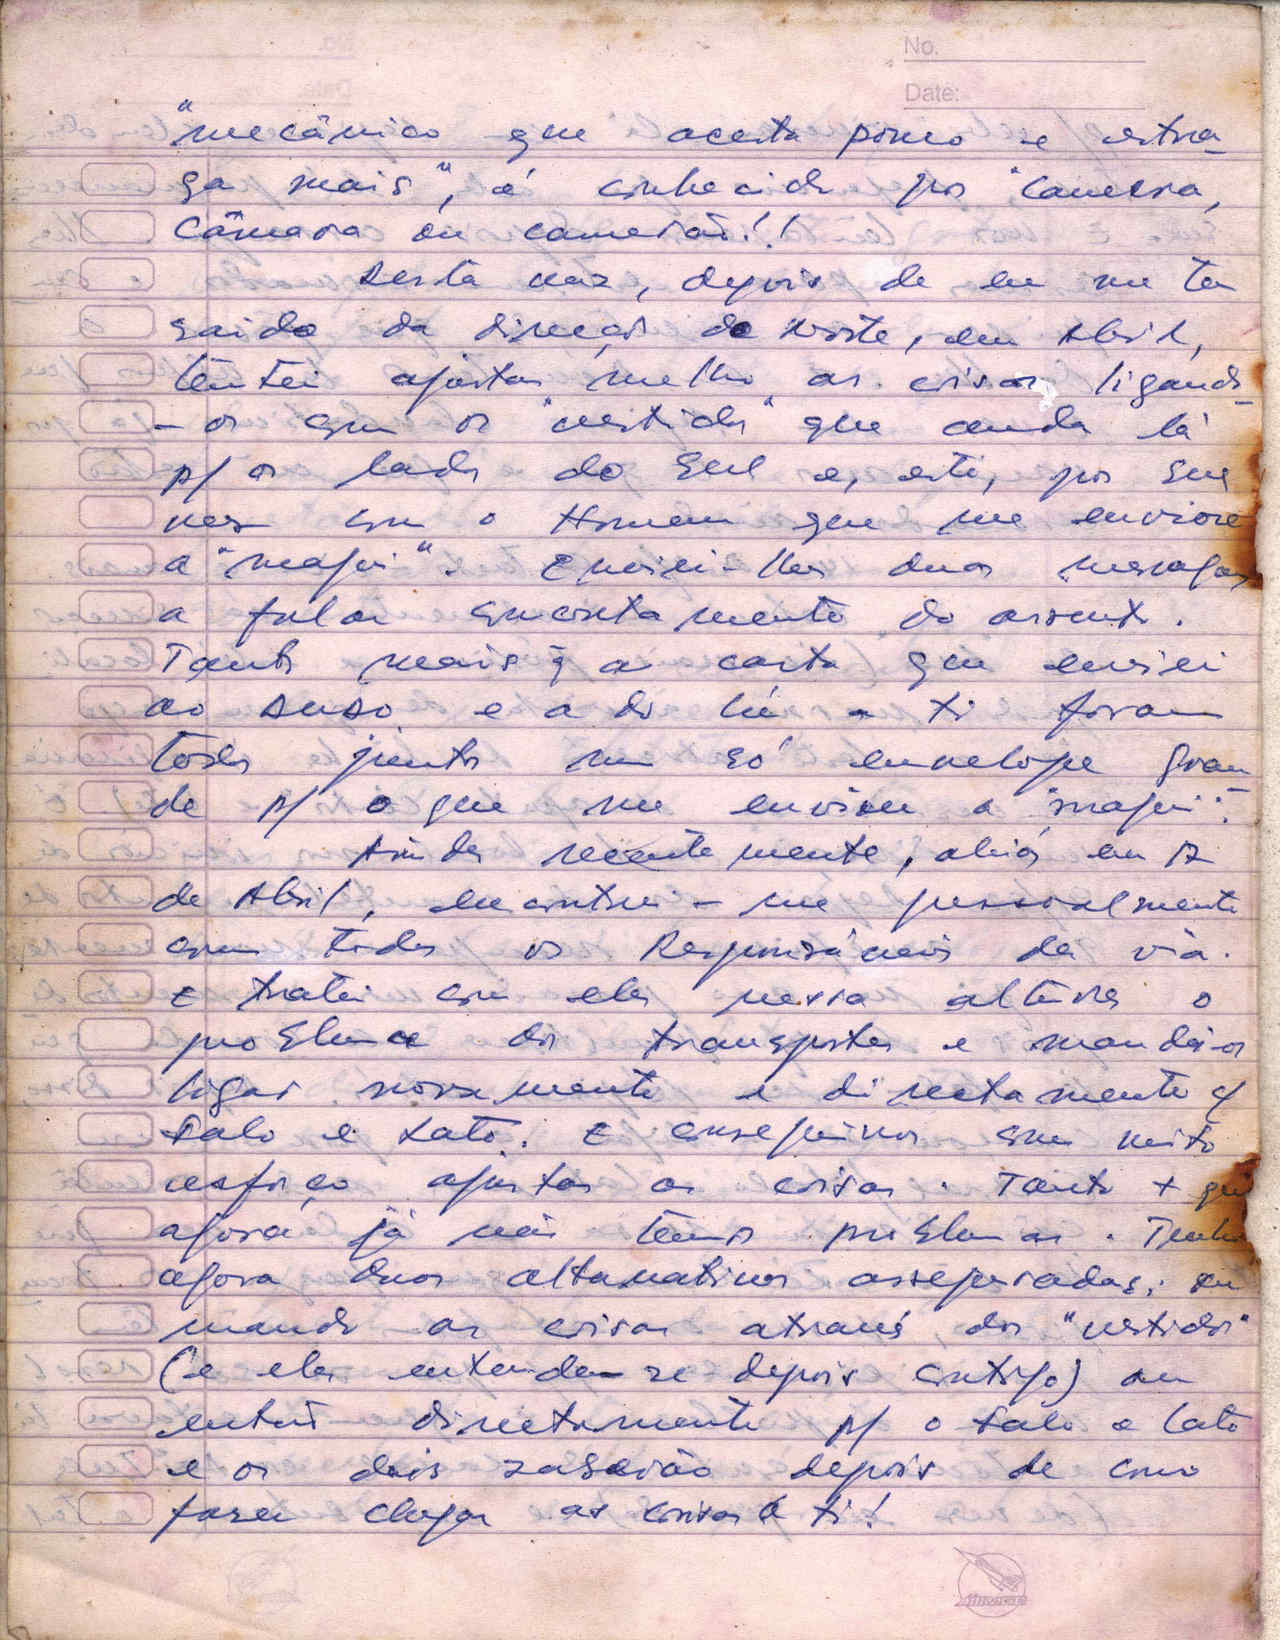 No.
Date:
"mecânico que acerta pouco e estra-
ga mais", é conhecido por "Camera,
Câmara ou camarão!!
Desta vez, depois de eu me ter
saido da direcção do Norte, em Abril,
tentei ajustar melhor as coisas ligando-
-os com os "vestidos" que anda lá
p/ os lados do Sul e, este, por sua
vez com o Homem que me enviou
a "mafui". Enviei-lhes duas mensagens
a falar concretamente do assunto.
Tanto mais q̃ a carta que enviei
ao e a do Lú a ti foram
todos juntos num só envelope gran-
de p/ o que me enviou a "mafui".
Ainda recentemente, aliás em 12
de Abril, encontrei-me pessoalmente
com todos os Responsáveis da via.
E tratei com eles nessa altura o
problema dos transportes e mandá-os
ligar novamente e directamente c/
Salo e Lato. E conseguimos com muito
esforço ajustar as coisas. Tanto + que
agora já não temos problemas. Tenho
agora duas alternativas asseguradas: ou
mando as coisas através dos "vestidos"
(e eles entendem-se depois contigo) ou
então directamente p/ o Salo e Lato
e os dois saberão depois de como
fazer chegar as coisas à ti!